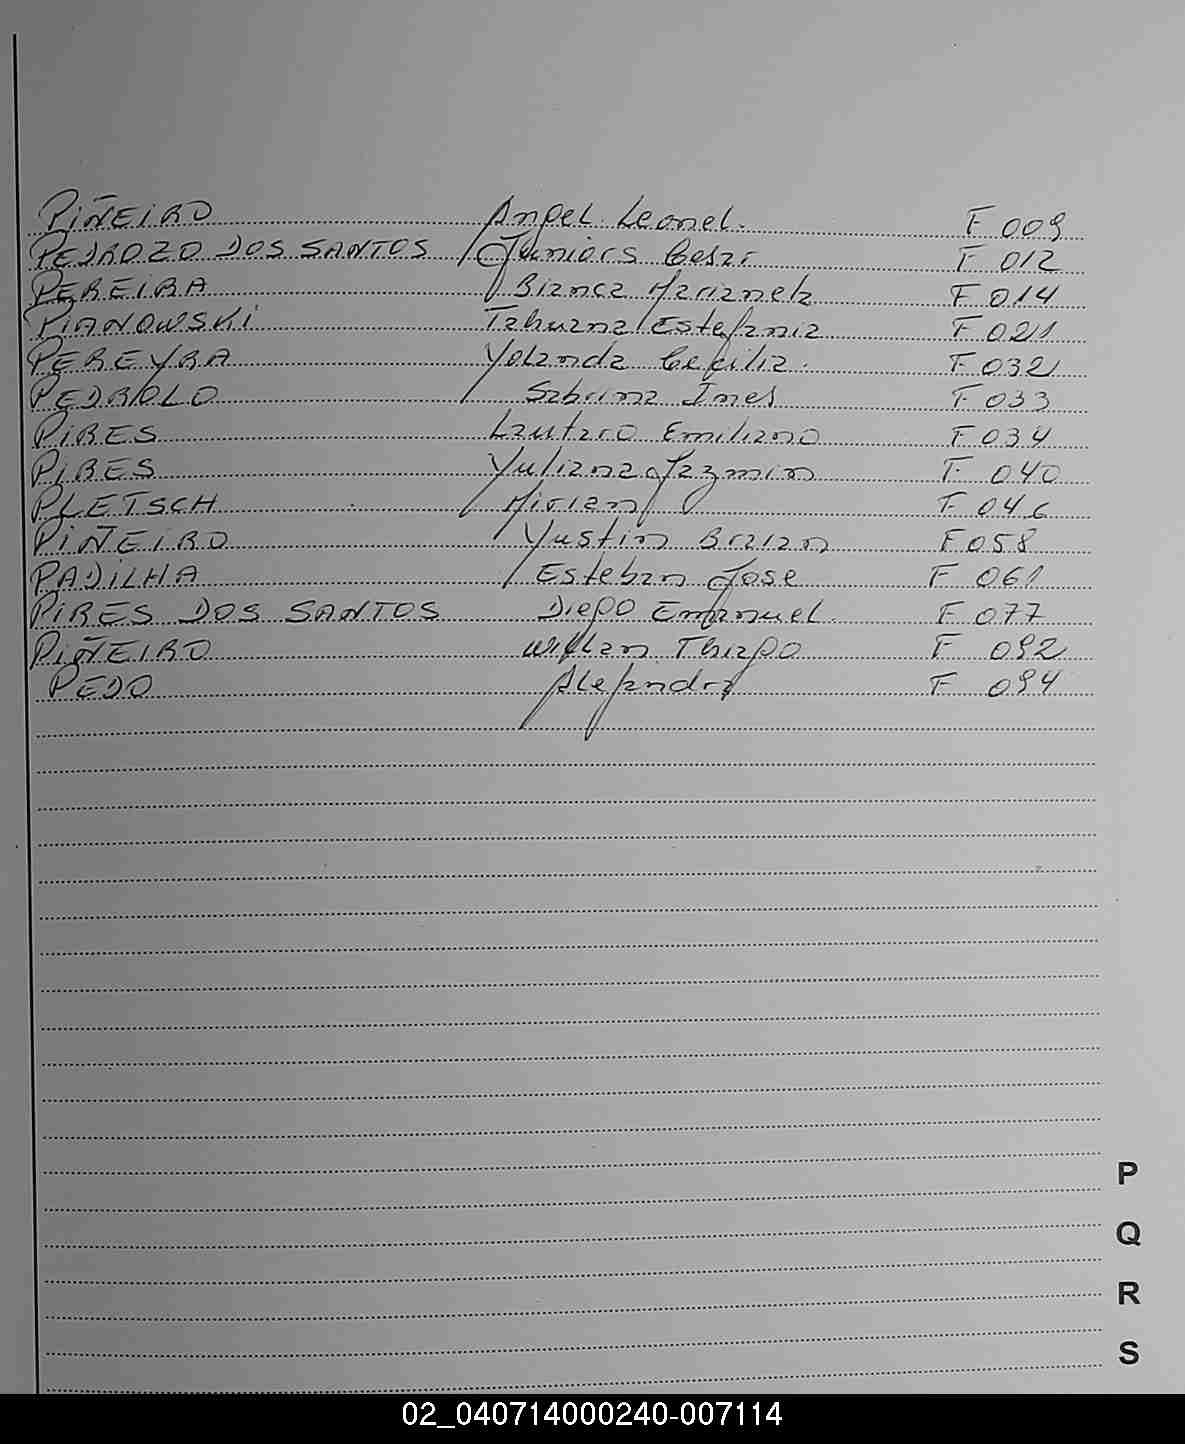 PIÑEIRO Angel Leonel. F 009
PEDROZO DOS SANTOS Juniors Cesar F 012
PEREIRA Bianca Marianela F 014
PIANOWSKI Tahuana Estefania F 021
PEREYRA Yolanda Cecilia. F 032
PEDROLO Sabrina Ines F 033
PIRES Lautaro Emiliano F 034
PIRES Yuliana Jazmin F 040
PLETSCH Miriam F 046
PIÑEIRO Yustin Braian F 058
PADILHA Esteban Jose F 061
PIRES DOS SANTOS Diego Emanuel. F 077
PIÑEIRO Willian Thiago F 092
PEDO Alejandra F 094
P
Q
R
S
02_040714000240-007114